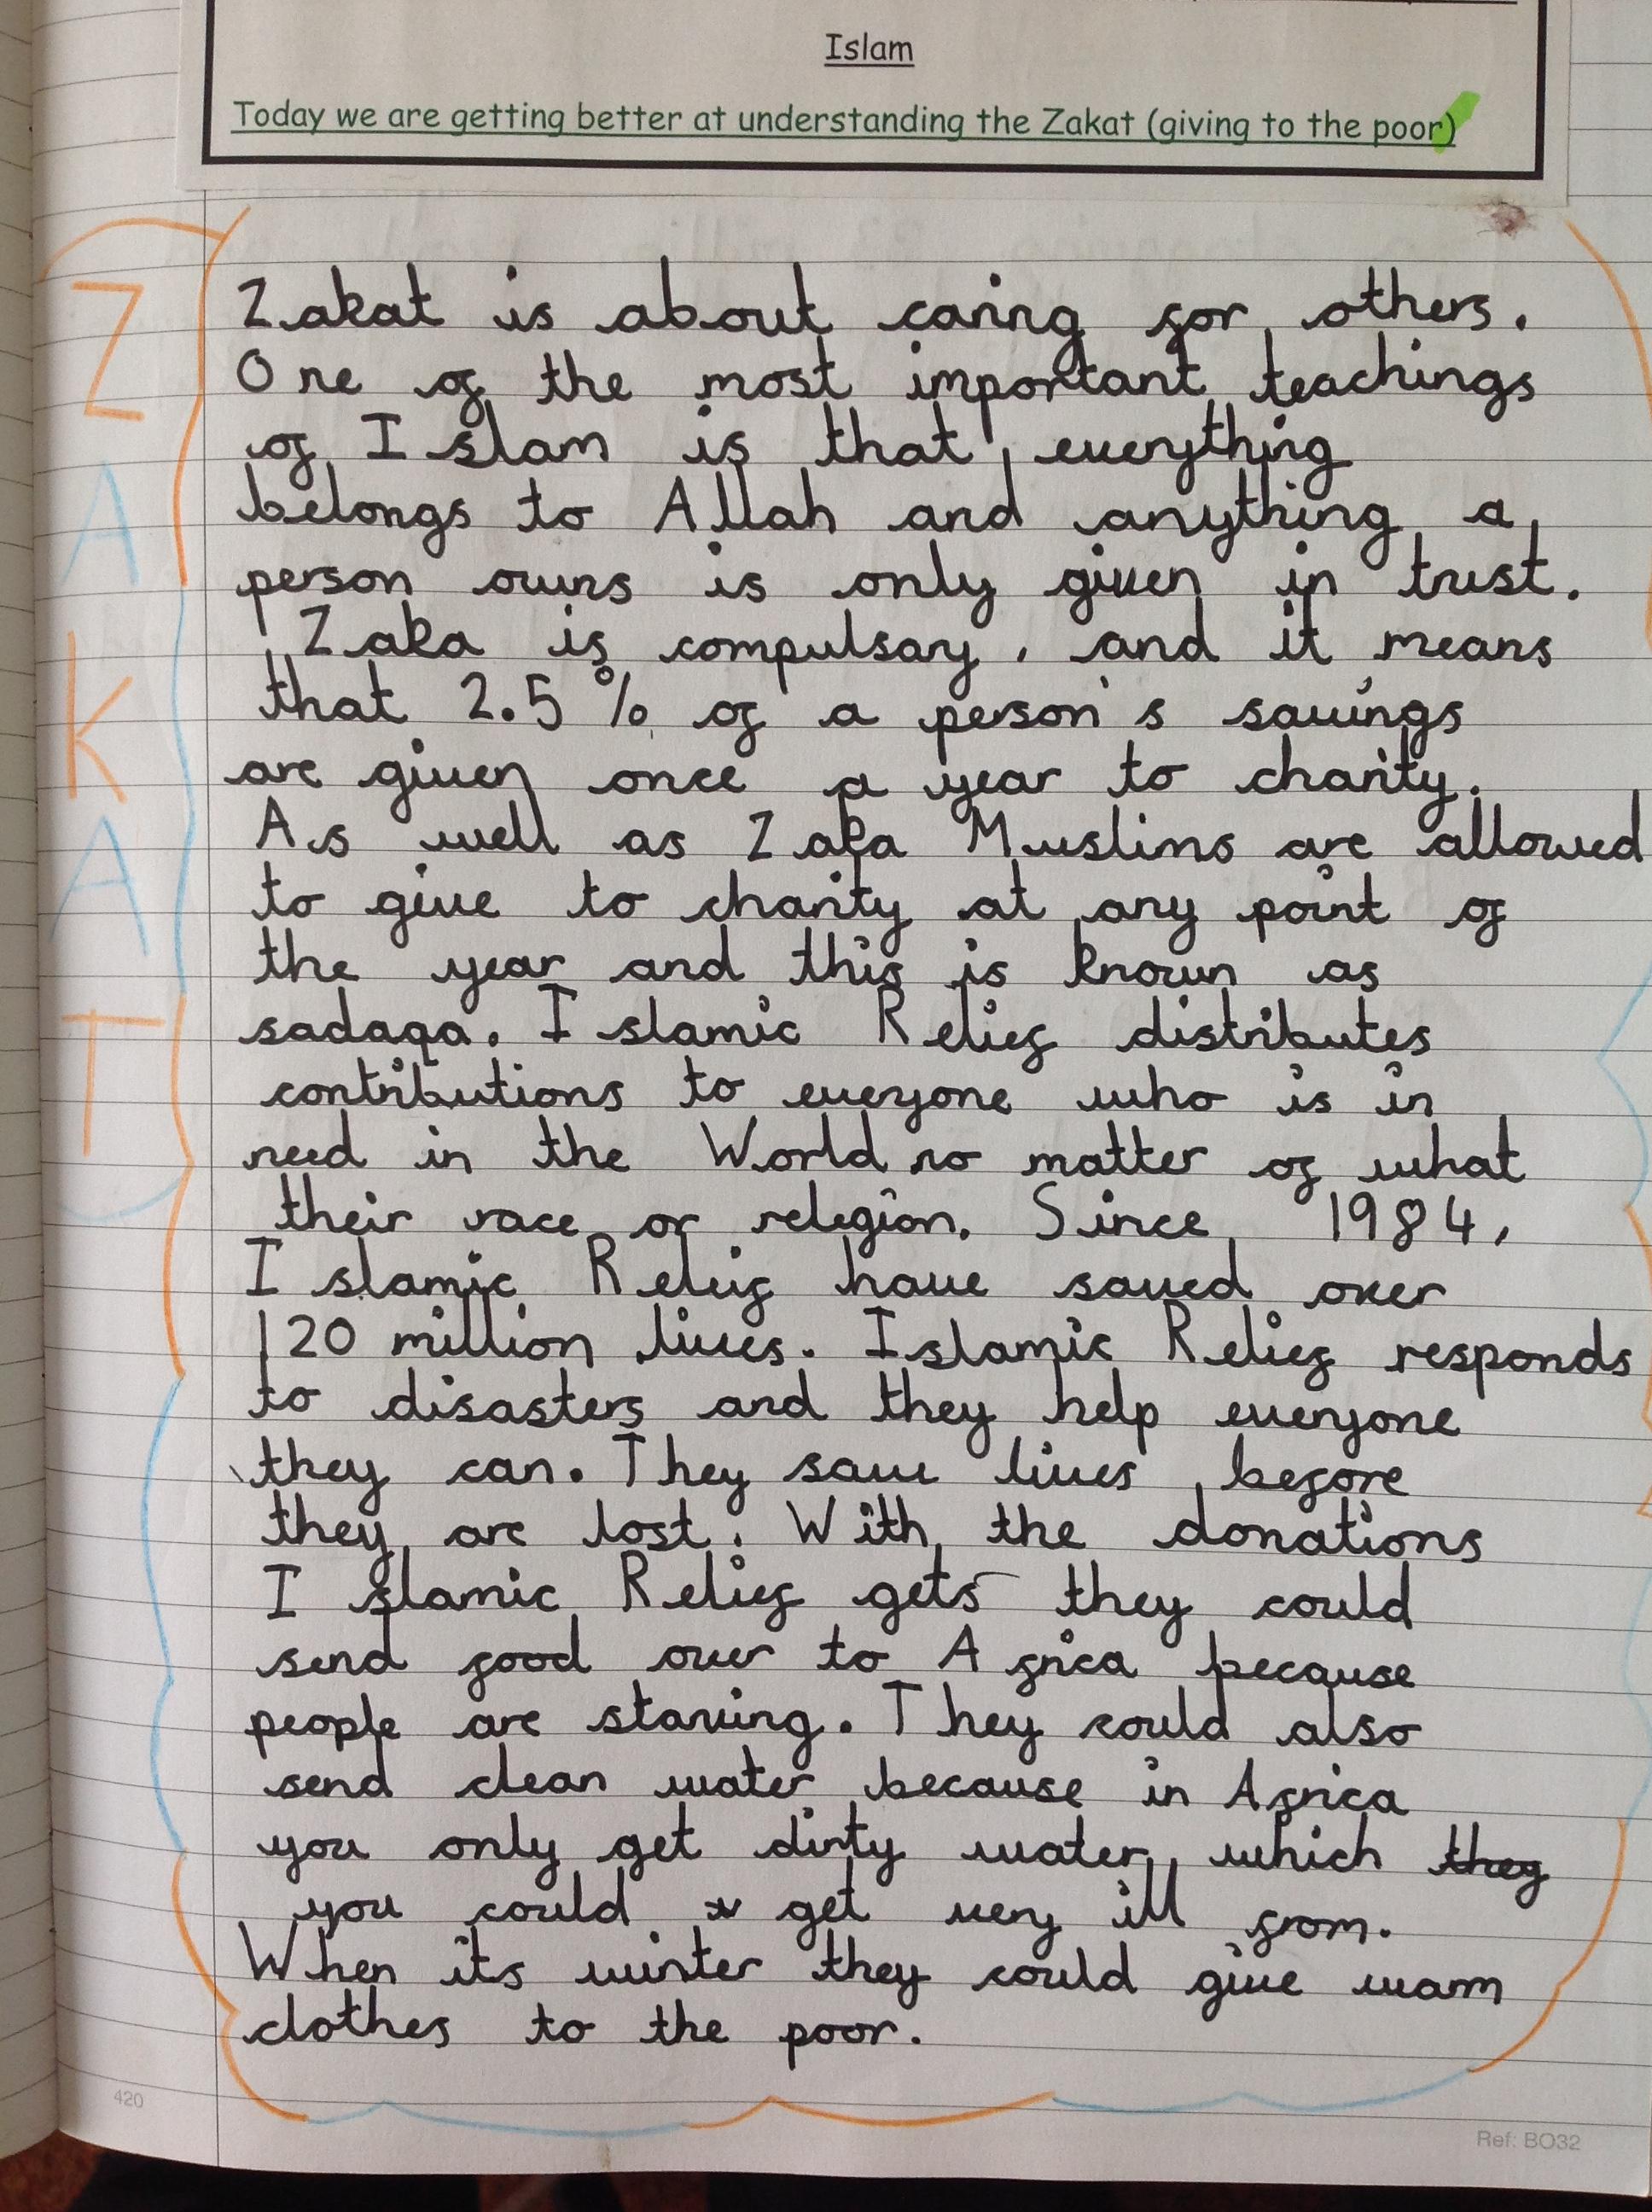 Islam
Today we are getting better at understanding the Zakat (giving to the poor)
ZAKAT
Zakat is about caring for others.
One of the most important teachings
of Islam is that everything
belongs to Allah and anything a
person owns is only given in trust.
Zaka is compulsary, and it means
that 2.5% of a person's savings
are given once a year to charity.
As well as Zaka Muslims are allowed
to give to charity at any point of
the year and this is known as
sadaqa. Islamic Relief distributes
contributions to everyone who is in
need in the World no matter of what
their race or relegion. Since 1984,
Islamic Releif have saved over
120 million lives. Islamic Relief responds
to disasters and they help everyone
they can. They save lives before
they are lost. With the donations
Islamic Relief gets they could
send food over to Africa because
people are starving. They could also
send clean water because in Africa
you only get dirty water which they
you could get very ill from.
When its winter they could give warm
clothes to the poor.
420
Ref: BO32